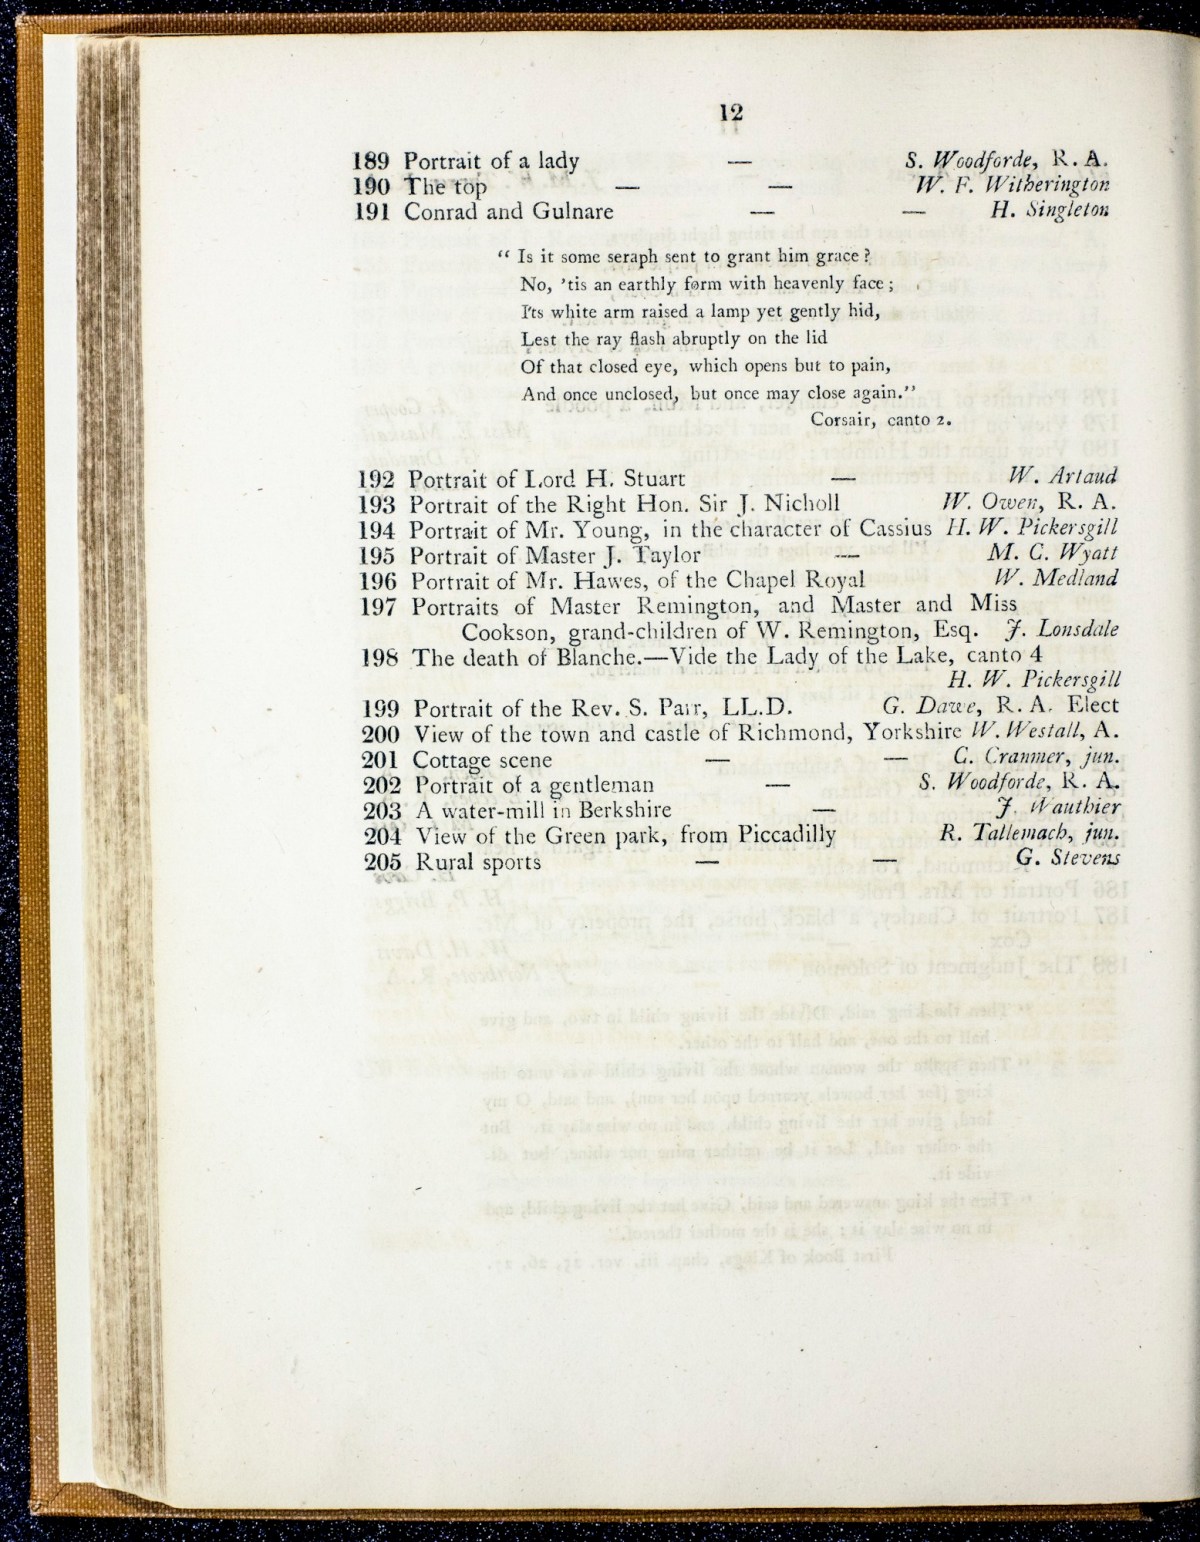 12
189 Portrait of a lady — S. Woodforde, R. A.
190 The top — — W. F. Witherington
191 Conrad and Gulnare — — H. Singleton
“ Is it some seraph sent to grant him grace ?
No, ’tis an earthly form with heavenly face ;
Its white arm raised a lamp yet gently hid,
Lest the ray flash abruptly on the lid
Of that closed eye, which opens but to pain,
And once unclosed, but once may close again.”
Corsair, canto 2.
192 Portrait of Lord H. Stuart — W. Artaud
193 Portrait of the Right Hon. Sir J. Nicholl W. Owen, R. A.
194 Portrait of Mr. Young, in the character of Cassius H. W. Pickersgill
195 Portrait of Master J. Taylor — M. C. Wyatt
196 Portrait of Mr. Hawes, of the Chapel Royal W. Medland
197 Portraits of Master Remington, and Master and Miss
Cookson, grand-children of W. Remington, Esq. J. Lonsdale
198 The death of Blanche.—Vide the Lady of the Lake, canto 4
H. W. Pickersgill
199 Portrait of the Rev. S. Parr, LL.D. G. Dawe, R. A. Elect
200 View of the town and castle of Richmond, Yorkshire W. Westall, A.
201 Cottage scene — — C. Cranmer, jun.
202 Portrait of a gentleman — S. Woodforde, R. A.
203 A water-mill in Berkshire — J. Wauthier
204 View of the Green park, from Piccadilly R. Tallemach, jun.
205 Rural sports — — G. Stevens